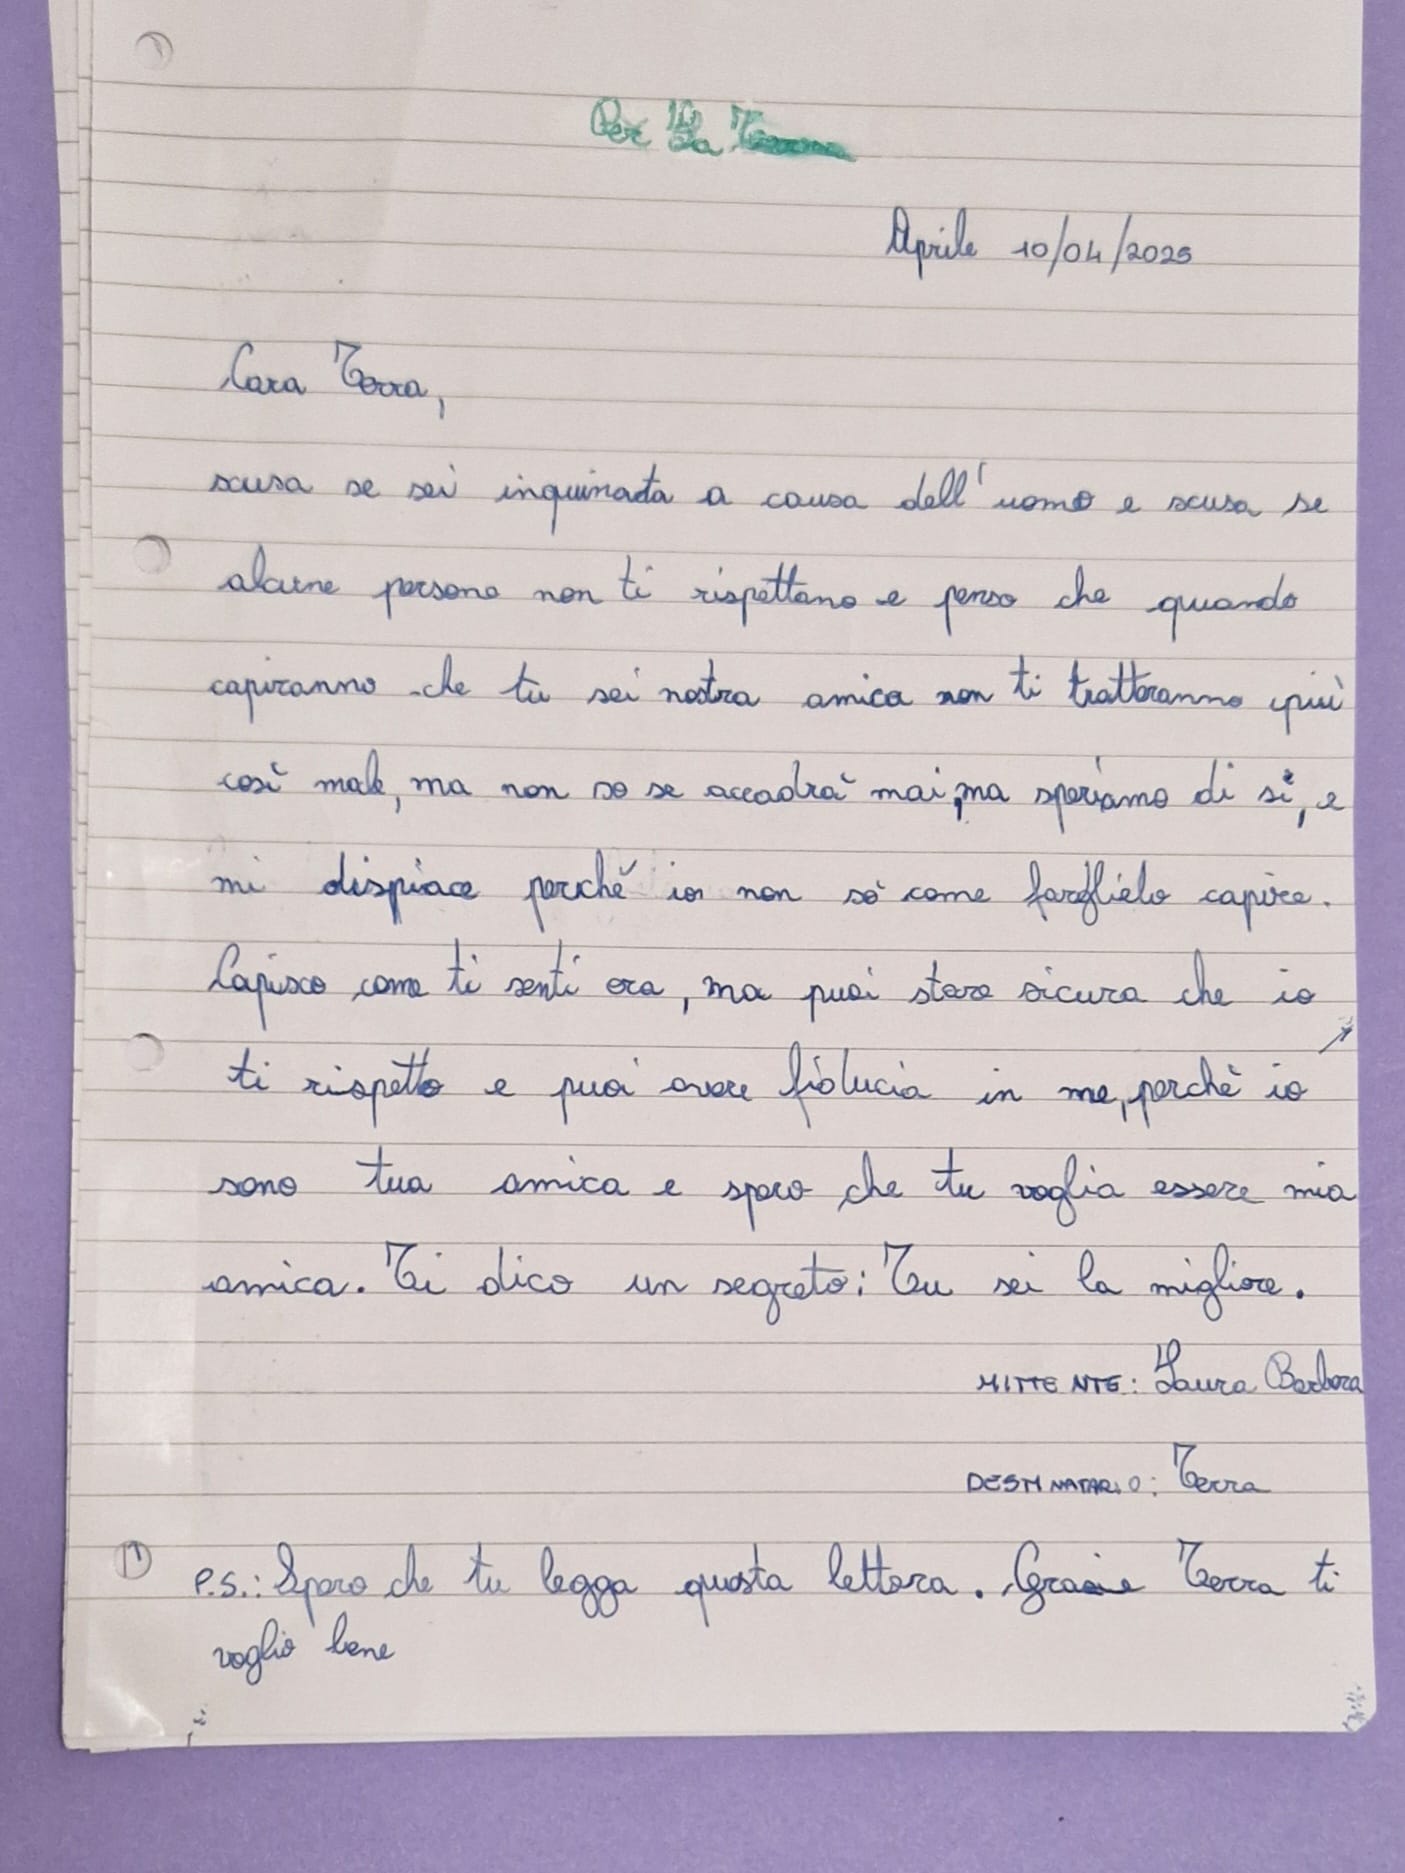 Per La Terra
Aprile 10/04/2025
Cara Terra,
scusa se sei inquinata a causa dell'uomo e scusa se
alcune persone non ti rispettano e penso che quando
capiranno che tu sei nostra amica non ti tratteranno più
così male, ma non so se accadrà mai, ma speriamo di sì, e
mi dispiace perchè io non sò come farglielo capire.
Capisco come ti senti ora, ma puoi stare sicura che io
ti rispetto e puoi avere fiducia in me, perchè io
sono tua amica e spero che tu voglia essere mia
amica. Ti dico un segreto: Tu sei la migliore.
MITTENTE: Laura Barbara
DESTINATARIO: Terra
P.S.: Spero che tu legga questa lettera. Grazie Terra ti
voglio bene